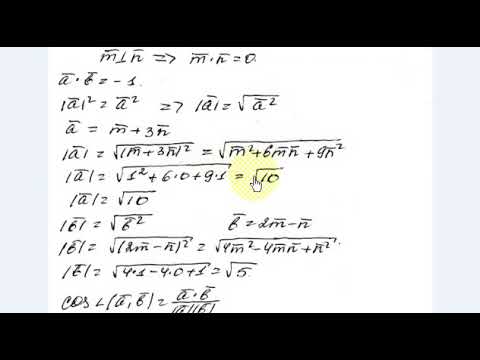 m̅⊥n̅ => m̅·n̅=0.
a̅·b̅=-1.
|a̅|²=a̅² => |a̅|=√a̅²
a̅=m̅+3n̅
|a̅|=√(m̅+3n̅)²=√m̅²+6m̅n̅+9n̅²
|a̅|=√1²+6·0+9·1=√10
|a̅|=√10
|b̅|=√b̅² b̅=2m̅-n̅
|b̅|=√(2m̅-n̅)²=√4m̅²-4m̅n̅+n̅².
|b̅|=√4·1-4·0+1=√5
cos∠(a̅,b̅)=a̅·b̅/|a̅||b̅|